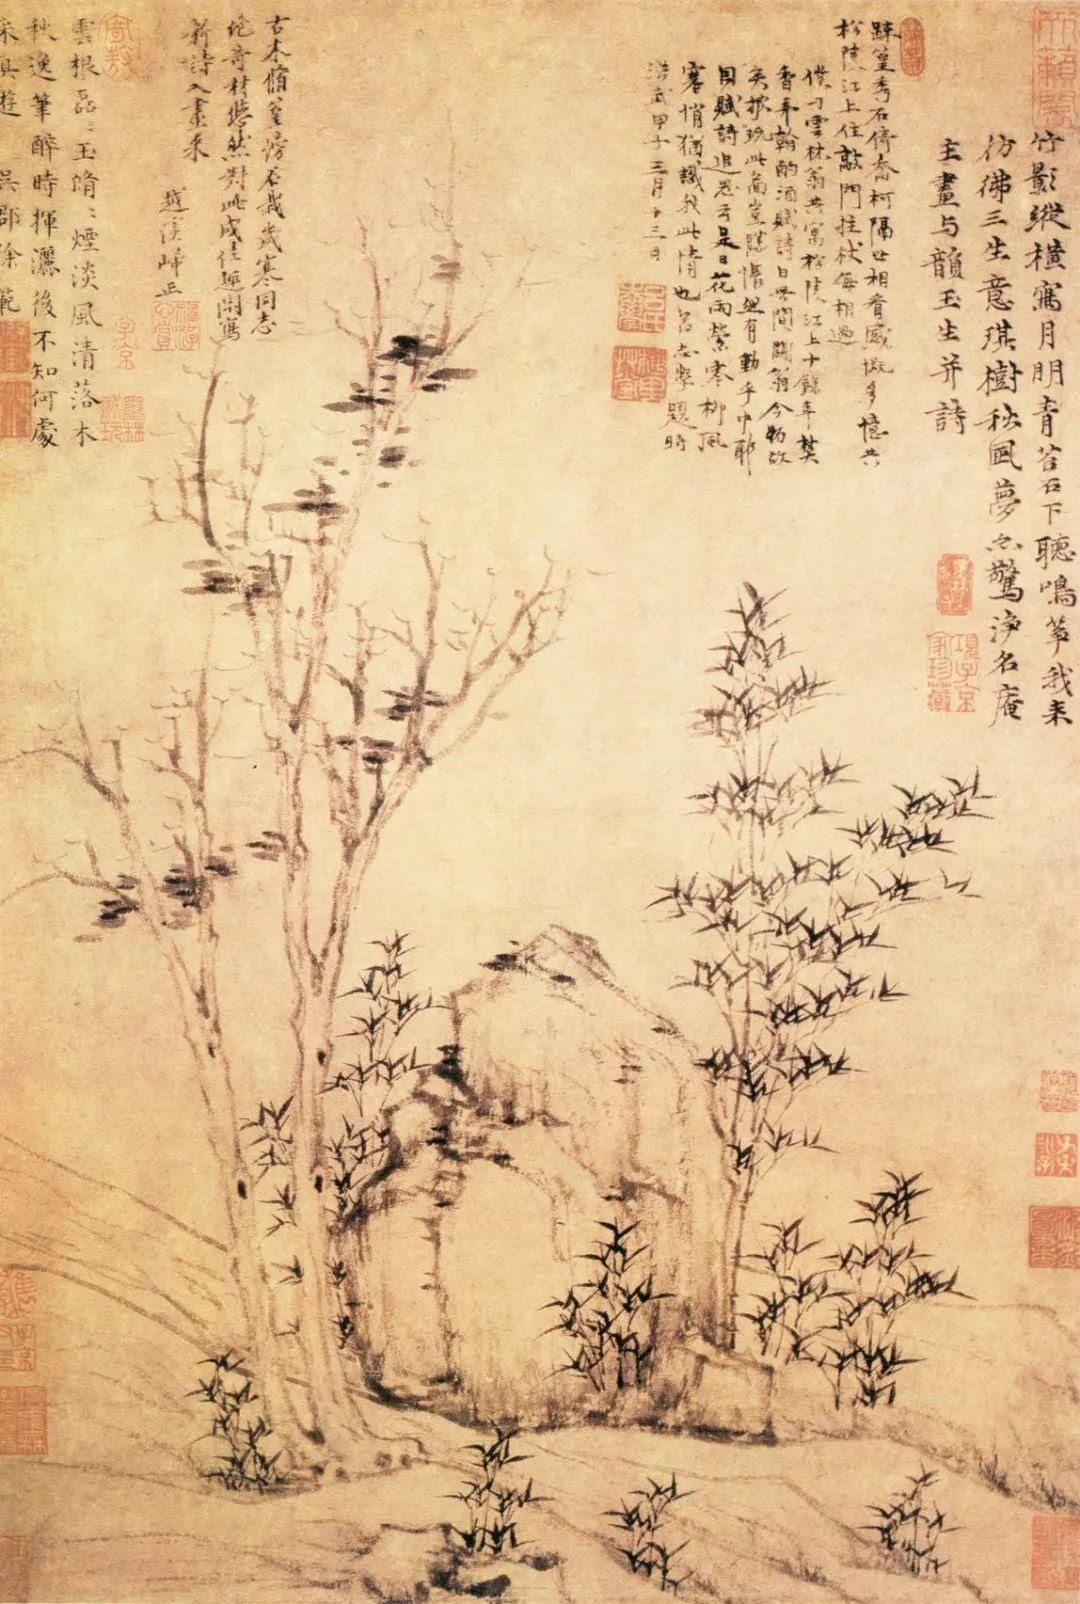 天籟閣
竹影縱橫寫月明青苔石下聽鳴箏我来
彷彿三生意琪樹秋風夢亦驚淨名庵
主畫与韻玉生并詩
項子京家珍藏
踈篁秀石倚喬柯隔世相看感慨多憶共
松陵江上住敲門拄杖每相過
僕与雲林翁共寓松陵江上十餘年焚
香弄翰酌酒賦詩日無間闊翁今物故
矣披玩此圖豈勝悵然有動乎中耶
因賦詩追云是日花雨縈寒柳風
寒悄猶識我此情也呂志學題時
洪武甲子三月十三日
古木脩篁石歲寒同志
絶奇材翛然對此成佳趣閒寫
新詩入畫来
越溪正
子京
墨林秘玩
雲根磊々玉脩々煙淡風清落木
秋逸筆醉時揮灑後不知何處
采真遊 吳郡徐範